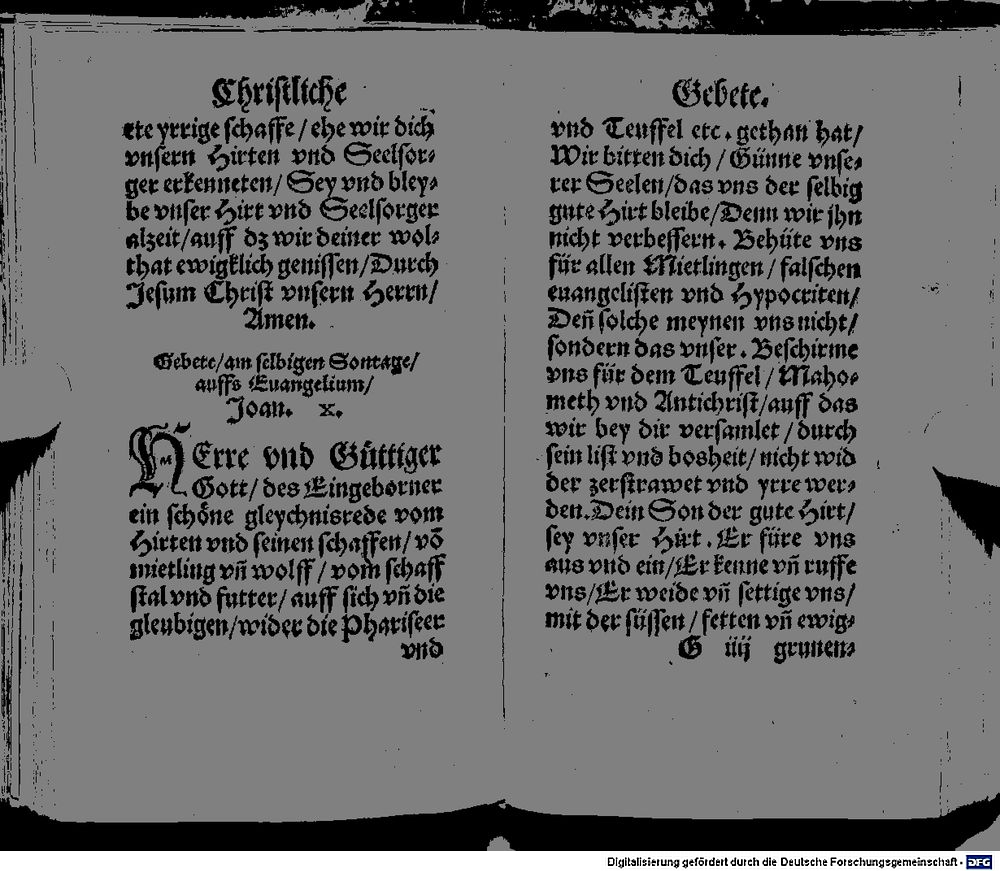 Christliche
ete yrrige schaffe / ehe wir dich
vnsern Hirten vnd Seelsor⸗
ger erkenneten / Sey vnd bley⸗
be vnser Hirt vnd Seelsorger
alzeit / auff dz wir deiner wol⸗
that ewigklich genissen / Durch
Jesum Christ vnsern Herrn /
Amen.
Gebete / am selbigen Sontage /
auffs Euangelium /
Joan. x.
HErre vnd Güttiger
Gott / des Eingeborner
ein schöne gleychnisrede vom
Hirten vnd seinen schaffen / võ
mietling vñ wolff / vom schaff
stal vnd futter / auff sich vñ die
gleubigen / wider die Phariseer
vnd
Gebete.
vnd Teuffel etc. gethan hat /
Wir bitten dich / Günne vnse⸗
rer Seelen / das vns der selbig
gute Hirt bleibe / Denn wir jhn
nicht verbessern. Behüte vns
für allen Mietlingen / falschen
euangelisten vnd Hypocriten /
Deñ solche meynen vns nicht /
sondern das vnser. Beschirme
vns für dem Teuffel / Maho⸗
meth vnd Antichrist / auff das
wir bey dir versamlet / durch
sein list vnd bosheit / nicht wid
der zerstrawet vnd yrre wer⸗
den. Dein Son der gute Hirt /
sey vnser Hirt. Er füre vns
aus vnd ein / Er kenne vñ ruffe
vns / Er weide vñ settige vns /
mit der süssen / fetten vñ ewig⸗
G iiij grunen⸗
Digitalisierung gefördert durch die Deutsche Forschungsgemeinschaft - DFG